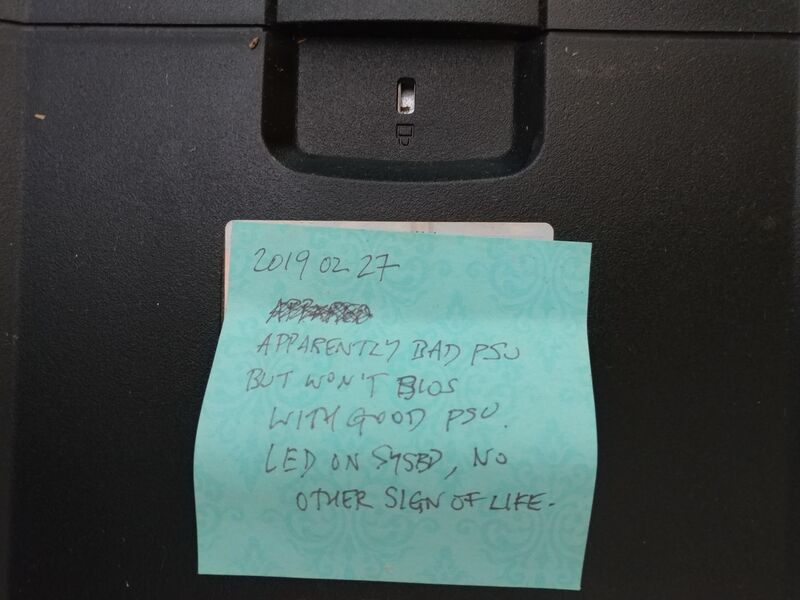 2019 02 27
APPARENTLY BAD PSU
BUT WON'T BIOS
WITH GOOD PSU.
LED ON SYSBD, NO
OTHER SIGN OF LIFE.